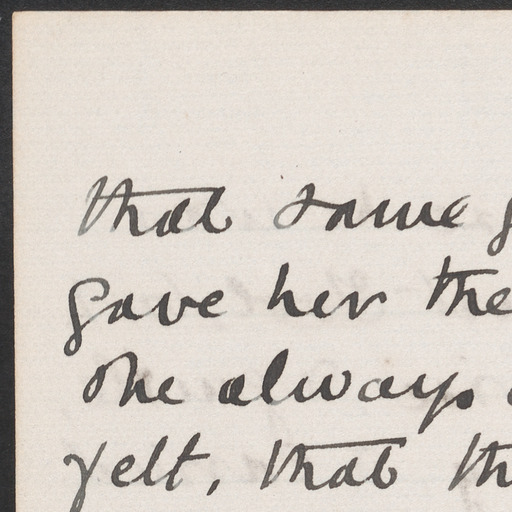 that same
gave her the
she always
felt, that